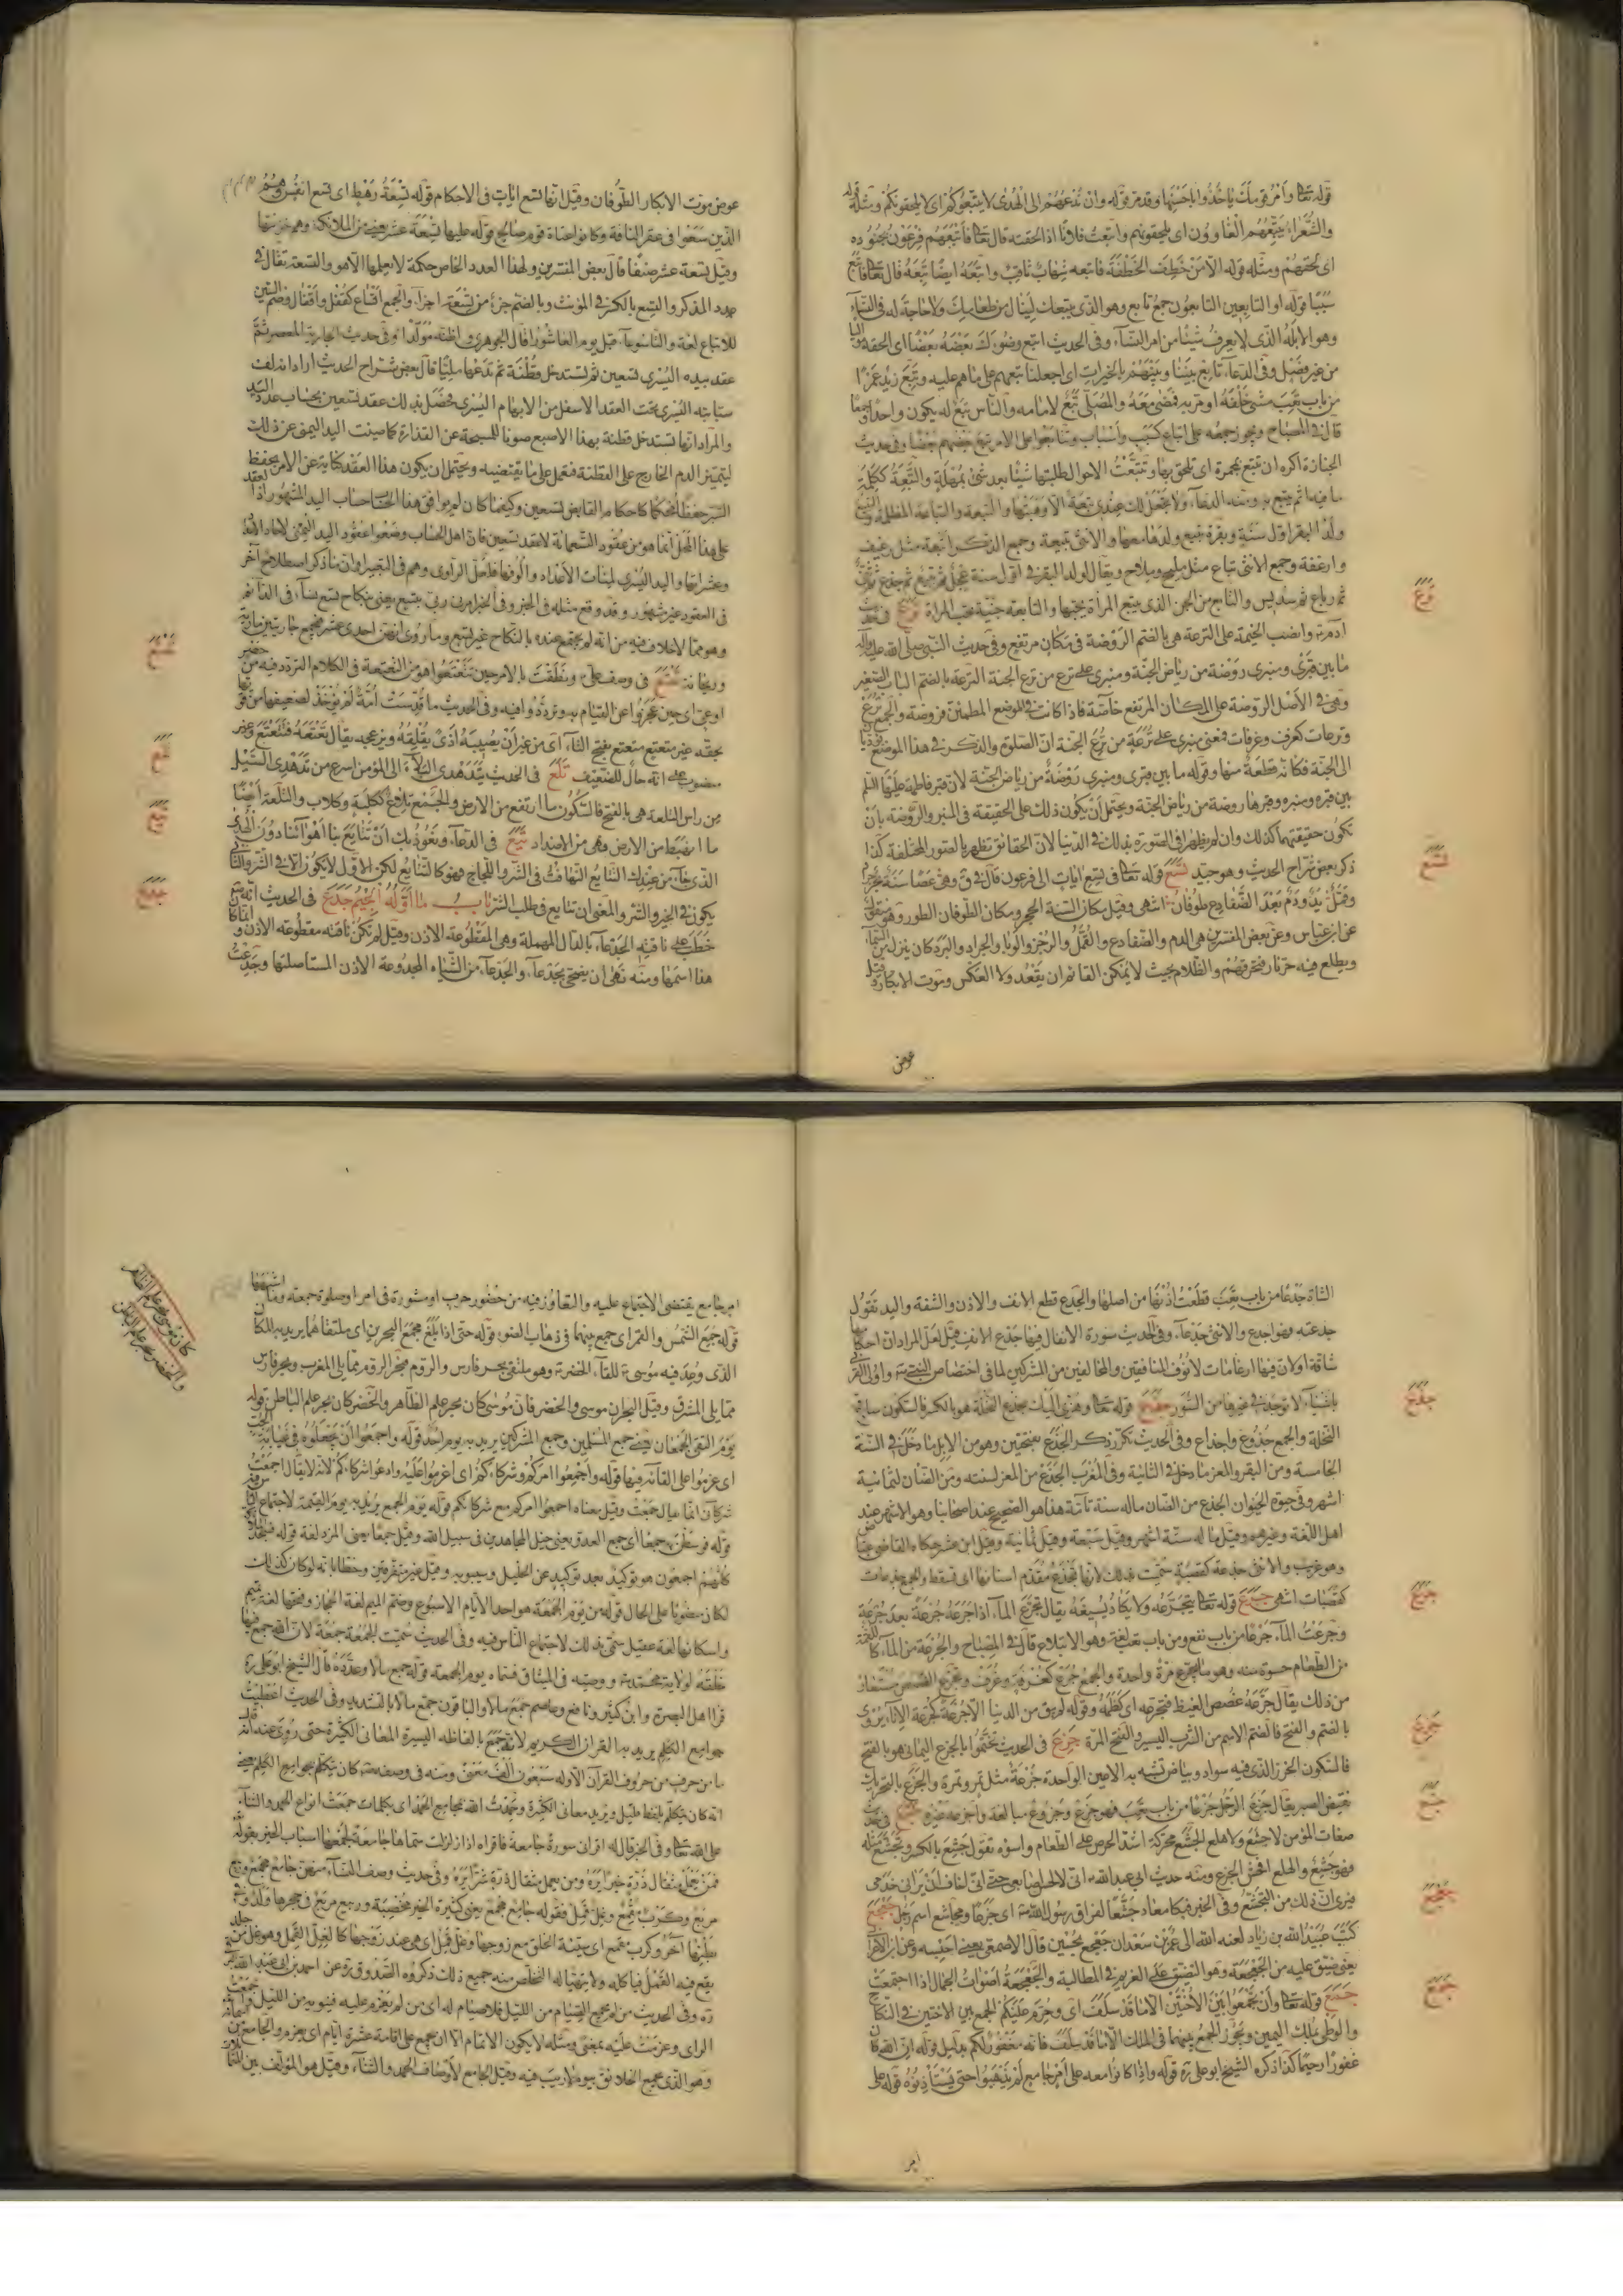 قوله تعالى وأمر قومك يأخذوا بأحسنها وقد مر قوله وان تدعوهم الى الهدى لا يتبعوكم اى لا يلحقونكم ومثله قوله
والشعراء يتبعهم الغاوون اى يلحقونهم واتبعت فلانا اذا لحقته قال تعالى فاتبعهم فرعون بجنوده
اى لحقهم ومثله قوله الا من خطف الخطفة فاتبعه شهاب ثاقب واتبعه ايضا تبعه قال تعالى فاتبع
سببا قوله او التابعين التابعون جمع تابع وهو الذى يتبعك لينال من طعامك ولا حاجة له فى النساء
وهو الابله الذى لا يعرف شيئا من امر النساء وفى الحديث اتبع وضوءك بعضه بعضا اى الحقه
من غير فصل وفى الدعاء تابع بيننا وبينهم بالخيرات اى اجعلنا نتبعهم على ما هم عليه وتبع زيد عمرا
من باب تعب مشى خلفه او مر به فمضى معه والمصلى تبع لامامه والناس تبع له يكون واحدا وجمعا
قال فى المصباح ويجوز جمعه على اتباع كسبب واسباب وتتابعوا على الامر تبع بعضهم بعضا وفى حديث
الجنازة اكره ان تتبع بمجمرة اى تلحق بها وتتبعت الاحوال طلبتها شيئا بعد شئ بمهلة والتبعة ككلمة
ما فيه اثم يتبع به ومنه الدعاء ولا تجعل لك عندى تبعة الا وهبتها والتبعة والتباعة المظلمة والتبيع
ولد البقر اول سنة وبقرة متبع ولدها معها والانثى تبيعة وجمع الذكر اتبعة مثل رغيف
وارغفة وجمع الانثى تباع مثل مليحة وملاح ويقال لولد البقر فى اول سنة عجل ثم تبيع ثم جذع ثم ثنى
ثم رباع ثم سديس والتابع من الجن الذى يتبع المرأة يحبها والتابعة جنية تحب المراة ترع فى حديث
آدم وانصب الخيمة على الترعة هى بالضم الروضة فى مكان مرتفع وفى حديث النبى صلى الله عليه وآله
ما بين قبرى ومنبرى روضة من رياض الجنة ومنبرى على ترعة من ترع الجنة الترعة بالضم الباب الصغير
وهى فى الاصل الروضة على المكان المرتفع خاصة فاذا كانت فى الموضع المطمئن فروضة والجمع ترع
وترعات كغرف وغرفات فمعنى منبرى على ترعة من ترع الجنة ان الصلوة والذكر فى هذا الموضع يؤديان
الى الجنة فكانه قطعة منها وقوله ما بين قبرى ومنبرى روضة من رياض الجنة لان قبر فاطمة عليها السلم
بين قبره ومنبره وقبرها روضة من رياض الجنة ويحتمل ان يكون ذلك على الحقيقة فى المنبر والروضة بان
تكون حقيقتهما كذلك وان لم يظهر فى الصورة بذلك فى الدنيا لان الحقائق تظهر بالصور المختلفة كذا
ذكر بعض شراح الحديث وهو جيد تسع قوله تعالى فى تسع ايات الى فرعون قال فى ق وهى عصا سنة بحر جراد
وقمل يد ودم بعد الضفادع طوفان انتهى وقيل مكان السنة الحجر ومكان الطوفان الطور وهو منقول
عن ابن عباس وعن بعض المفسرين هى الدم والضفادع والقمل والرجز والوبا والجراد والبرد كان ينزل من السماء
ويطلع فيه حر نار فتحرقهم والظلام بحيث لا يمكن القائم ان يقعد ولا العكس وموت الابكار وقيل
عوض
ترع
تسع
عوض موت الابكار الطوفان وقيل انها تسع ايات فى الاحكام قوله تسعة رهط اى تسع انفس وهم
الذين سعوا فى عقر الناقة وكانوا عتاة قوم صالح قوله عليها تسعة عشر يعنى من الملائكة وهم خزنتها
وقيل تسعة عشر صنفا قال بعض المفسرين ولهذا العدد الخاص حكمة لا يعلمها الا هو والتسعة تقال فى
عدد المذكر والتسع بالكسر فى المؤنث وبالضم جزء من تسعة اجزاء والجمع اتساع كقفل واقفال وضم السين
للاتباع لغة والتاسوعاء قبل يوم العاشورا قال الجوهرى واظنه مولدا وفى حديث الجارية المعصر ثم
عقد بيده اليسرى تسعين ثم تستدخل قطنة ثم تدعها مليا قال بعض شراح الحديث اراد انه لف
سبابته اليسرى تحت العقد الاسفل من الابهام اليسرى فحصل بذلك عقد تسعين بحساب عدد اليد
والمراد انها تستدخل قطنة بهذا الاصبع صونا للمسبحة عن القذارة كما صينت اليد اليمنى عن ذلك
ليتميز الدم الخارج على القطنة فتعمل على ما يقتضيه ويحتمل ان يكون هذا العقد كناية عن الامر بحفظ
السر حفظا محكما كاحكام القابض تسعين وكيفما كان لم يوافق هذا الحساب حساب اليد المشهور اذ العقد
على هذا المحل انما هو من عقود التسعمائة لا عقد تسعين فان اهل الحساب وضعوا عقود اليد اليمنى لاحاد العدد
وعشراتها واليد اليسرى لمئات الاعداد والوفها فلعل الراوى وهم فى التعبير او ان ما ذكر اصطلاح آخر
فى العقود غير مشهور وقد وقع مثله فى الخبر وفى الخبر امرنى ربى بتسع يعنى بنكاح تسع نساء فى القائم
وهو مما لا خلاف فيه من انه لم يجتمع عنده بالنكاح غير تسع وما روى انهن احدى عشر فبجمع جاريتين مارية
وريحانة تعتع فى وصف على ونطقت بالامر حين تتعتعوا هو من التعتعة فى الكلام التردد فيه من حصر
او عى اى حين عجزوا عن القيام به وترددوا فيه وفى الحديث ما قدست امة لم يؤخذ لضعيفها من قويها
بحقه غير متعتع متعتع بفتح التاء اى من غير ان يصيبه اذى يقلقه ويزعجه يقال تعتعه فتتعتع وغير
منصوب على انه حال للضعيف تلع فى الحديث يتدهدى البلاء الى المؤمن اسرع من تدهدى السيل
من راس التلعة هى بالفتح فالسكون ما ارتفع من الارض والجمع تلاع ككلبة وكلاب والتلعة ايضا
ما انهبط من الارض وهى من الاضداد تيع فى الدعاء ونعوذ بك ان تتايع بنا اهواؤنا دون الهدى
الذى جاء من عندك التتايع التهافت فى الشر واللجاج وهو كالتتابع لكن الاول لا يكون الا فى الشر والثانى
يكون فى الخير والشر والمعنى ان تتايع فى طلب الشر باب ما اوله الجيم جدع فى الحديث انه
خطب على ناقته الجدعاء بالدال المهملة وهى المقطوعة الاذن وقيل لم تكن ناقته مقطوعة الاذن وانما كان
هذا اسمها ومنه نهى ان يضحى بجدعاء والجدعاء من الشياه المجدوعة الاذن المستاصلتها وجدعت
تعتع
تلع
تيع
جدع
الشاة جدعا من باب تعب قطعت اذنها من اصلها والجدع قطع الانف والاذن والشفة واليد تقول
جدعته فهو اجدع والانثى جدعاء وفى الحديث سورة الانفال فيها جدع الانف قيل لعل المراد ان احكامها
شاقة او لان فيها ارغامات لانوف المنافقين والمخالفين من المشركين لما فى اختصاص النبى واولى القربى
باشياء لا توجد فى غيرها من السور جذع قوله تعالى وهزى اليك بجذع النخلة هو بالكسر فالسكون ساق
النخلة والجمع جذوع واجذاع وفى الحديث تكرر ذكر الجذع بفتحتين وهو من الابل ما دخل فى السنة
الخامسة ومن البقر والمعز ما دخل فى الثانية وفى المغرب الجذع من المعز لسنته ومن الضان لثمانية
اشهر وفى حيوة الحيوان الجذع من الضان ماله سنة تامة هذا هو الصحيح عند اصحابنا وهو الاشهر عند
اهل اللغة وغيرهم وقيل ما له ستة اشهر وقيل سبعة وقيل ثمانية وقيل ابن عشر حكاه القاضى عياض
وهو غريب والانثى جذعة كقصبة سميت بذلك لانها تجذع مقدم اسنانها اى تسقط والجمع جذعات
كقصبات انتهى جرع قوله تعالى يتجرعه ولا يكاد يسيغه يقال تجرع الماء اذا جرعه جرعة بعد جرعة
وجرعت الماء جرعا من باب نفع ومن باب تعب لغة وهو الابتلاع قال فى المصباح والجرعة من الماء كاللقمة
من الطعام حسوة منه وهو ما يجرع مرة واحدة والجمع جرع كغرفة وغرف وتجرع الغصص مستعار
من ذلك يقال جرعه غصص الغيظ فتجرعه اى كظمه وقوله لم يبق من الدنيا الا جرعة كجرعة الاناء يروى
بالضم والفتح فالضم الاسم من الشرب اليسير والفتح المرة جزع فى الحديث تختموا بالجزع اليمانى هو بالفتح
فالسكون الخرز الذى فيه سواد وبياض تشبه به الاعين الواحدة جزعة مثل تمر وتمرة والجزع بالتحريك
نقيض الصبر يقال جزع الرجل جزعا من باب تعب فهو جزع وجزوع مبالغة واجزعه غيره جشع فى حديث
صفات المؤمن لا جشع ولا هلع الجشع محركة اشد الحرص على الطعام واسوؤه تقول جشع بالكسر وتجشع مثله
فهو جشع والهلع افحش الجزع ومنه حديث ابى عبد الله انى لالحس اصابعى حتى انى لخاف ان يرانى خدمى
فيرى ان ذلك من التجشع وفى الخبر فبكا معاذ جشعا لفراق رسول الله اى جزعا ومجاشع اسم رجل جعجع
كتب عبيد الله بن زياد لعنه الله الى عمر بن سعد ان جعجع بحسين قال الاصمعى يعنى احبسه وعن ابن الاعرابى
يعنى ضيق عليه من الجعجعة وهو التضييق على الغريم فى المطالبة والجعجعة اصوات الجمال اذا اجتمعت
جمع قوله تعالى وان تجمعوا بين الاختين الا ما قد سلف اى وحرم عليكم الجمع بين الاختين فى النكاح
والوطى بملك اليمين ويجوز الجمع بينهما فى الملك الا ما قد سلف فانه مغفور لكم بدليل قوله ان الله كان
غفورا رحيما كذا ذكره الشيخ ابو على ره قوله واذا كانوا معه على امر جامع لم يذهبوا حتى يستاذنوه قوله على
امر
جذع
جرع
جزع
جشع
جعجع
جمع
امر جامع يقتضى الاجتماع عليه والتعاون فيه من حضور حرب او مشورة فى امر او صلوة جمعة وما اشبهها
قوله جمع الشمس والقمر اى جمع بينهما فى ذهاب الضوء قوله حتى اذا بلغ مجمع البحرين اى ملتقاهما يريد به المكان
الذى وعد فيه موسى للقاء الخضر وهو ملتقى بحر فارس والروم فبحر الروم مما يلى المغرب وبحر فارس
مما يلى المشرق وقيل البحرين موسى والخضر فان موسى كان بحر علم الظاهر والخضر كان بحر علم الباطن قوله
يوم التقى الجمعان يعنى جمع المسلمين وجمع المشركين يريد به يوم احد قوله واجمعوا ان يجعلوه فى غيابة الجب
اى عزموا على القائه فيها قوله واجمعوا امركم وشركاءكم اى اعزموا عليه وادعوا شركاءكم لانه لا يقال اجمعت
شركائى انما يقال جمعت وقيل معناه اجمعوا امركم مع شركائكم قوله يوم الجمع يريد به يوم القيمة لاجتماع الناس فيه
قوله فوسطن به جمعا اى جمع العدو يعنى خيل المجاهدين فى سبيل الله وقيل جمعا يعنى المزدلفة قوله فسجد الملائكة
كلهم اجمعون هو توكيد بعد توكيد عن الخليل وسيبويه وقيل غير متفرقين وخطا بانه لو كان كذلك
لكان منصوبا على الحال قوله من يوم الجمعة هو احد الايام الاسبوع وضم الميم لغة الحجاز وفتحها لغة تميم
واسكانها لغة عقيل سمى بذلك لاجتماع الناس فيه وفى الحديث سميت الجمعة جمعة لان الله جمع فيها
خلقه لولاية محمد ووصيه فى الميثاق فسماه يوم الجمعة قوله جمع مالا وعدده قال الشيخ ابو على ره
قرا اهل البصرة وابن كثير ونافع وعاصم جمع مالا والباقون جمع مالا بالتشديد وفى الحديث اعطيت
جوامع الكلم يريد به القران الكريم لانه جمع بالفاظه اليسيرة المعانى الكثيرة حتى روى عنه انه قال
ما من حرف من حروف القرآن الا وله سبعون الف معنى ومنه فى وصفه كان يتكلم بجوامع الكلم يعنى
انه كان يتكلم بلفظ قليل ويريد معانى الكثيرة وحمدت الله بمجامع الحمد اى بكلمات جمعت انواع الحمد والثناء
على الله تعالى وفى الخبر قال له اقرانى سورة جامعة فاقراه اذا زلزلت سماها جامعة لجمعها اسباب الخير بقوله
فمن يعمل مثقال ذرة خيرا يره ومن يعمل مثقال ذرة شرا يره وفى حديث وصف النساء منهن جامع مجمع وربيع
مربع وكرب مقمع وغل قمل فقوله جامع مجمع يعنى كثيرة الخير مخصبة وربيع مربع فى حجرها ولد وفى
بطنها آخر وكرب مقمع اى سيئة الخلق مع زوجها وغل قمل اى هى عند زوجها كالغل القمل وهو غل من جلد
يقع فيه القمل فياكله ولا يتهيا له التخلص منه جميع ذلك ذكره الصدوق ره عن احمد بن ابى عبد الله البرقى
ره وفى الحديث من لم يجمع الصيام من الليل فلا صيام له اى من لم يعزم عليه فينويه من الليل واجمعت
الراى وعزمت عليه بمعنى ومثله لا يكون الاتمام الا ان يجمع على اقامة عشرة ايام اى يعزم والجامع من اسمائه
وهو الذى يجمع الخلائق بيوم لا ريب فيه وقيل الجامع لاوصاف الحمد والثناء وقيل هو المؤلف بين المتماثلات
كان موسى بحر علم الظاهر
والخضر بحر علم الباطن